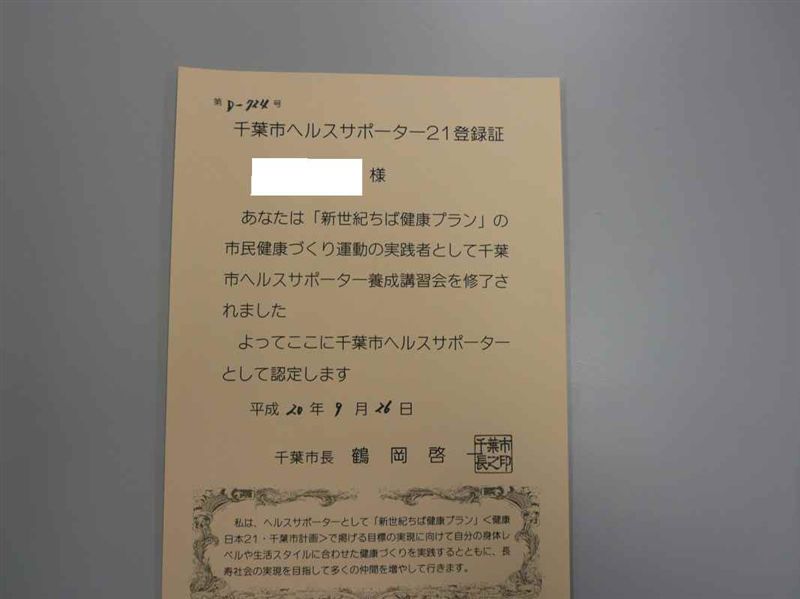 第 D-924 号
千葉市ヘルスサポーター21登録証
様
あなたは「新世紀ちば健康プラン」の
市民健康づくり運動の実践者として千葉
市ヘルスサポーター養成講習会を修了さ
れました
よってここに千葉市ヘルスサポーター
として認定します
平成 20 年 9 月 26 日
千葉市長 鶴岡啓一
千葉市
長之印
私は、ヘルスサポーターとして「新世紀ちば健康プラン」<健康
日本21・千葉市計画>で掲げる目標の実現に向けて自分の身体レ
ベルや生活スタイルに合わせた健康づくりを実践するとともに、長
寿社会の実現を目指して多くの仲間を増やして行きます。